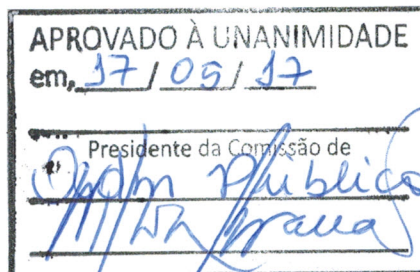 APROVADO À UNANIMIDADE
em, 17 / 05 / 17
Presidente da Comissão de
Pública